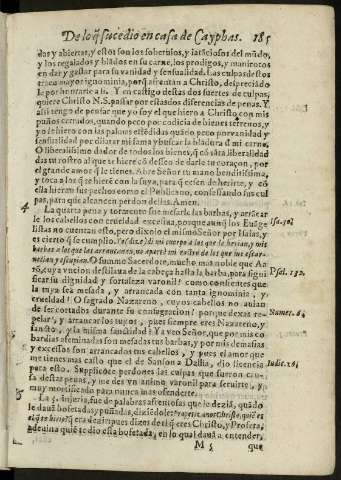 De lo q̃ sucedio en casa de Cayphas. 185
das y abiertas, y estos son los soberuios, y jactāciosos del mūdo,
y los regalados y blādos en su carne, los prodigos, y manirotos
en dar y gastar para su vanidad y sensualidad. Las culpas destos
trata mayor ignominia, porq̃ afrentan a Christo, despreciādo
le por hōrarse a si. Y en castigo destas dos suertes de culpas,
quiere Christo N.S. passar por estas dos diferencias de penas. Y
assi tengo de pensar que yo soy el que hiero a Christo con mis
puños cerrados, quando peco por codicia de bienes terrenos, y
yo le hiero con las palmas estēdidas quādo peco por vanidad y
sensualidad por dilatar mi fama y buscar la blādura d mi carne.
O liberalissimo dador de todos los bienes, q̃ nō sāta liberalidad
das tu rostro al que te hiere cō desseo de darle tu coraçon, por
el grande amor q̃ le tienes. Abre Señor tu mano bendittissima,
y toca a los q̃ te hirié con la suya, para q̃ cessen de herirte, y cō
ella hieran sus pechos como el Publicano, confessando sus cul
pas, para que alcancen perdon dellas. Amen.
4 La quarta pena y tormento fue messarle las barbas, y arrācar
le los cabellos con crueldad excessiua, porque aunq̃ los Euāge Isa. 50.
listas no cuentan esto, pero dixolo el mismo Señor por Isaias, y
es cierto q̃ se cumplio. Yo (dize) di mi cuerpo a los que le herian, y mis
barbas a los que las arrancauan, no apartè mi rostro de los que me escar-
necian y escupian. O summo Sacerdote, mucho mas noble que Aa
rō, cuya vncion destilaua de la cabeça hasta la barba, para signi Psal. 132.
ficar su dignidad y fortaleza varonil! como consientes que
la tuya sea messada, y arrancada con tanta ignominia, y
crueldad! O sagrado Nazareno, cuyos cabellos no auian
de ser cortados durante su consagracion! porque dexas re- Numer. 6.
pelar, y arrancar los tuyos, pues siempre eres Nazareno, y
santo, y la misma santidad! Ya veo Señor, que por mis co
bardias afeminadas son messadas tus barbas, y por mis demasias
y excessos son arrancados tus cabellos, y pues el amor que
me tienes mas casto que el de Sanson a Dalila, dio licencia Iudic. 16.
para esto. Suplicote perdones las culpas que fueron cau-
sa destas penas, y me des vn animo varonil para seruirte, y
muy mortificado para nunca mas ofenderte.
5 La 5. injuria, fue de palabras afrentosas que le dezià, quādo
le dauā bofetadas y puñadas, diziēdole: Prophetiza nos Christe, quiē es
el q̃ te hirio? q̃ era dezir: pues dizes del q̃ eres Christo, y Profeta,
adeuina quiē te dio essa bofetada, en lo qual dauā a entender,
M 5 que